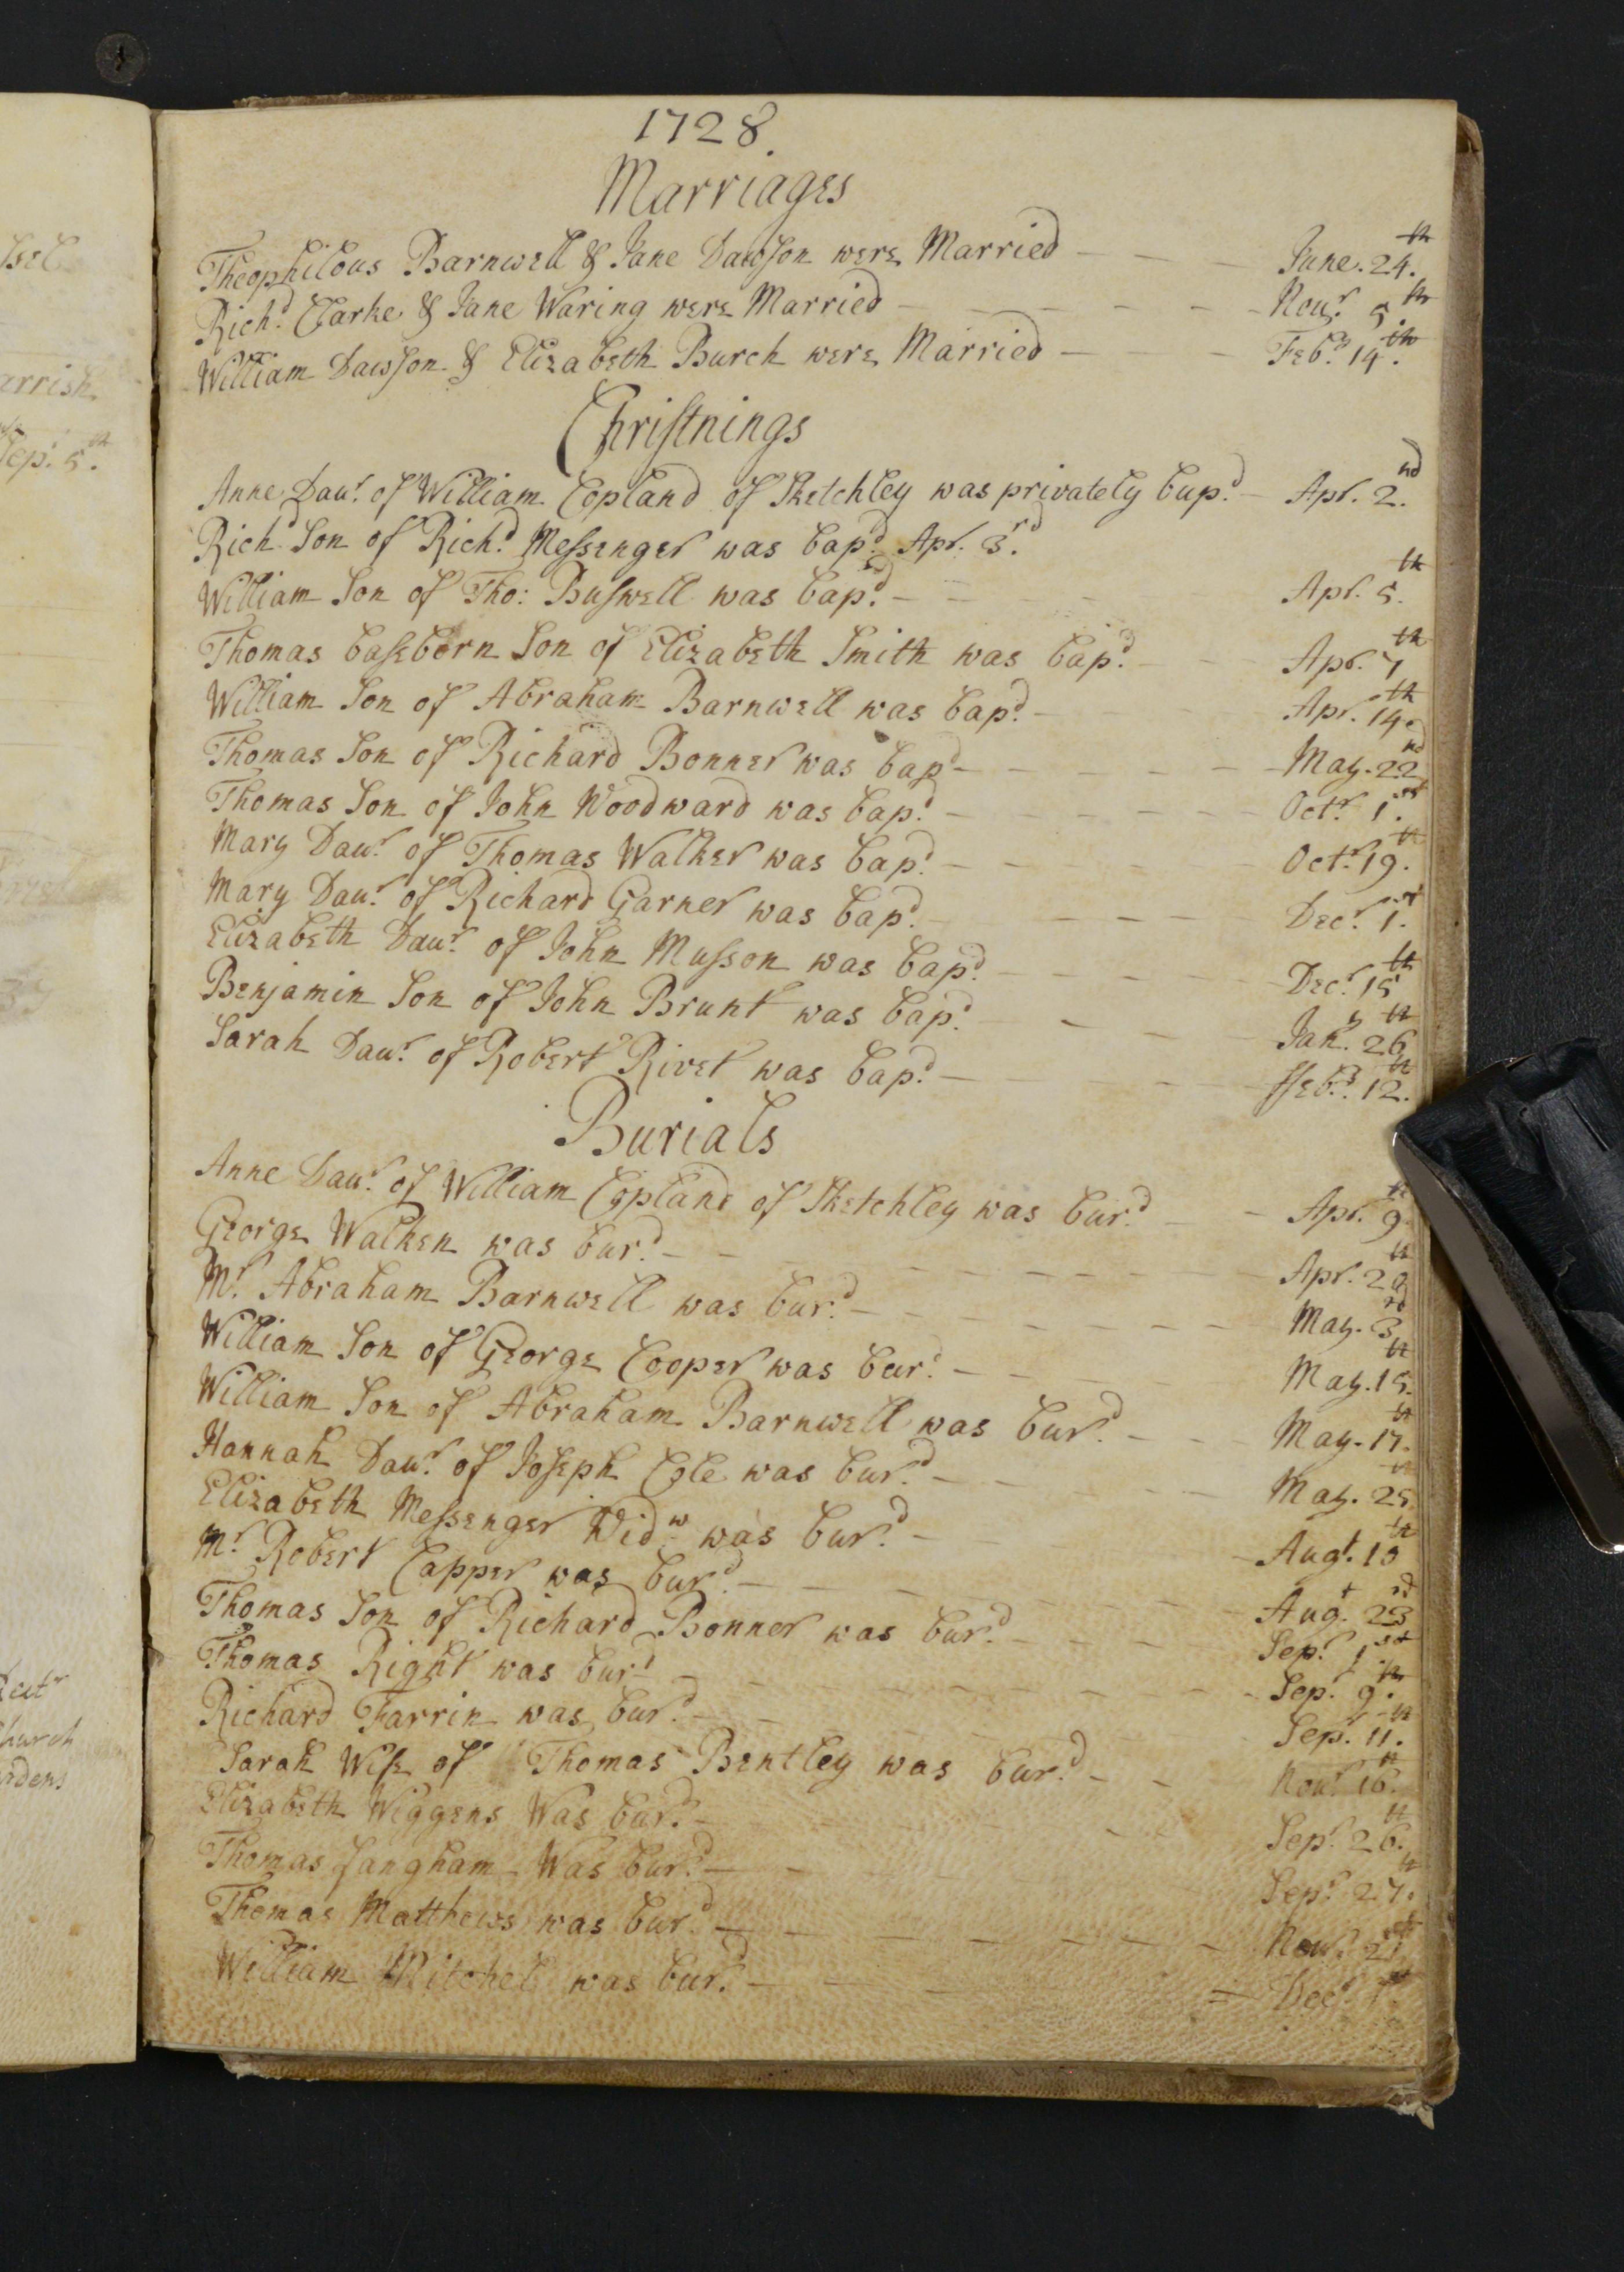 1728.
Marriages
Theophilous Barnwell & Jane Dawson were Married June. 24.th
Rich.d Clarke & Jane Waring were Married Nou.r 5.th
William Dawson & Elizabeth Burch were Married Feb.y 14.th
Christnings
Anne Dau.r of William Copland of Sketchley was privately bap.d Apr. 2.nd
Rich.d Son of Rich.d Messenger was bap.d Apr. 3.rd
William Son of Tho: Buswell was bap.d Apr. 5.th
Thomas baseborn Son of Elizabeth Smith was bap.d Apr. 7th
William Son of Abraham Barnwell was bap.d Apr. 14.th
Thomas Son of Richard Bonner was bap.d May. 22nd
Thomas Son of John Woodward was bap.d Oct.r 1.st
Mary Dau.r of Thomas Walker was bap.d Oct.r 19.th
Mary Dau.r of Richard Garner was bap.d Dec.r 1.st
Elizabeth Dau.r of John Musson was bap.d Dec.r 15th
Benjamin Son of John Brunt was bap.d Jan.y 26th
Sarah Dau.r of Robert Rivet was bap.d ffeb.y 12.th
Burials
Anne Dau.r of William Copland of Sketchley was bur.d Apr. 9th
George Walken was bur.d Apr. 29th
M.r Abraham Barnwell was bur.d May. 3rd
William Son of George Cooper was bur.d May. 15.th
William Son of Abraham Barnwell was bur.d May. 17.th
Hannah Dau.r of Joseph Cole was bur.d May. 25th
Elizabeth Messenger Wid.w was bur.d Aug.t 10th
M.r Robert Capper was bur.d Aug.t 23rd
Thomas Son of Richard Bonner was bur.d Sep.r 1st
Thomas Right was bur.d Sep.r 9.th
Richard Farrin was bur.d Sep.r 11.th
Sarah Wife of Thomas Bentley was bur.d Nou.r 16.th
Elizabeth Wiggens Was bur.d Sep.r 26.th
Thomas Langham Was bur.d Sep.r 27.th
Thomas Matthews was bur.d Nou.r 21st
William Mitchel was bur.d Dec.r